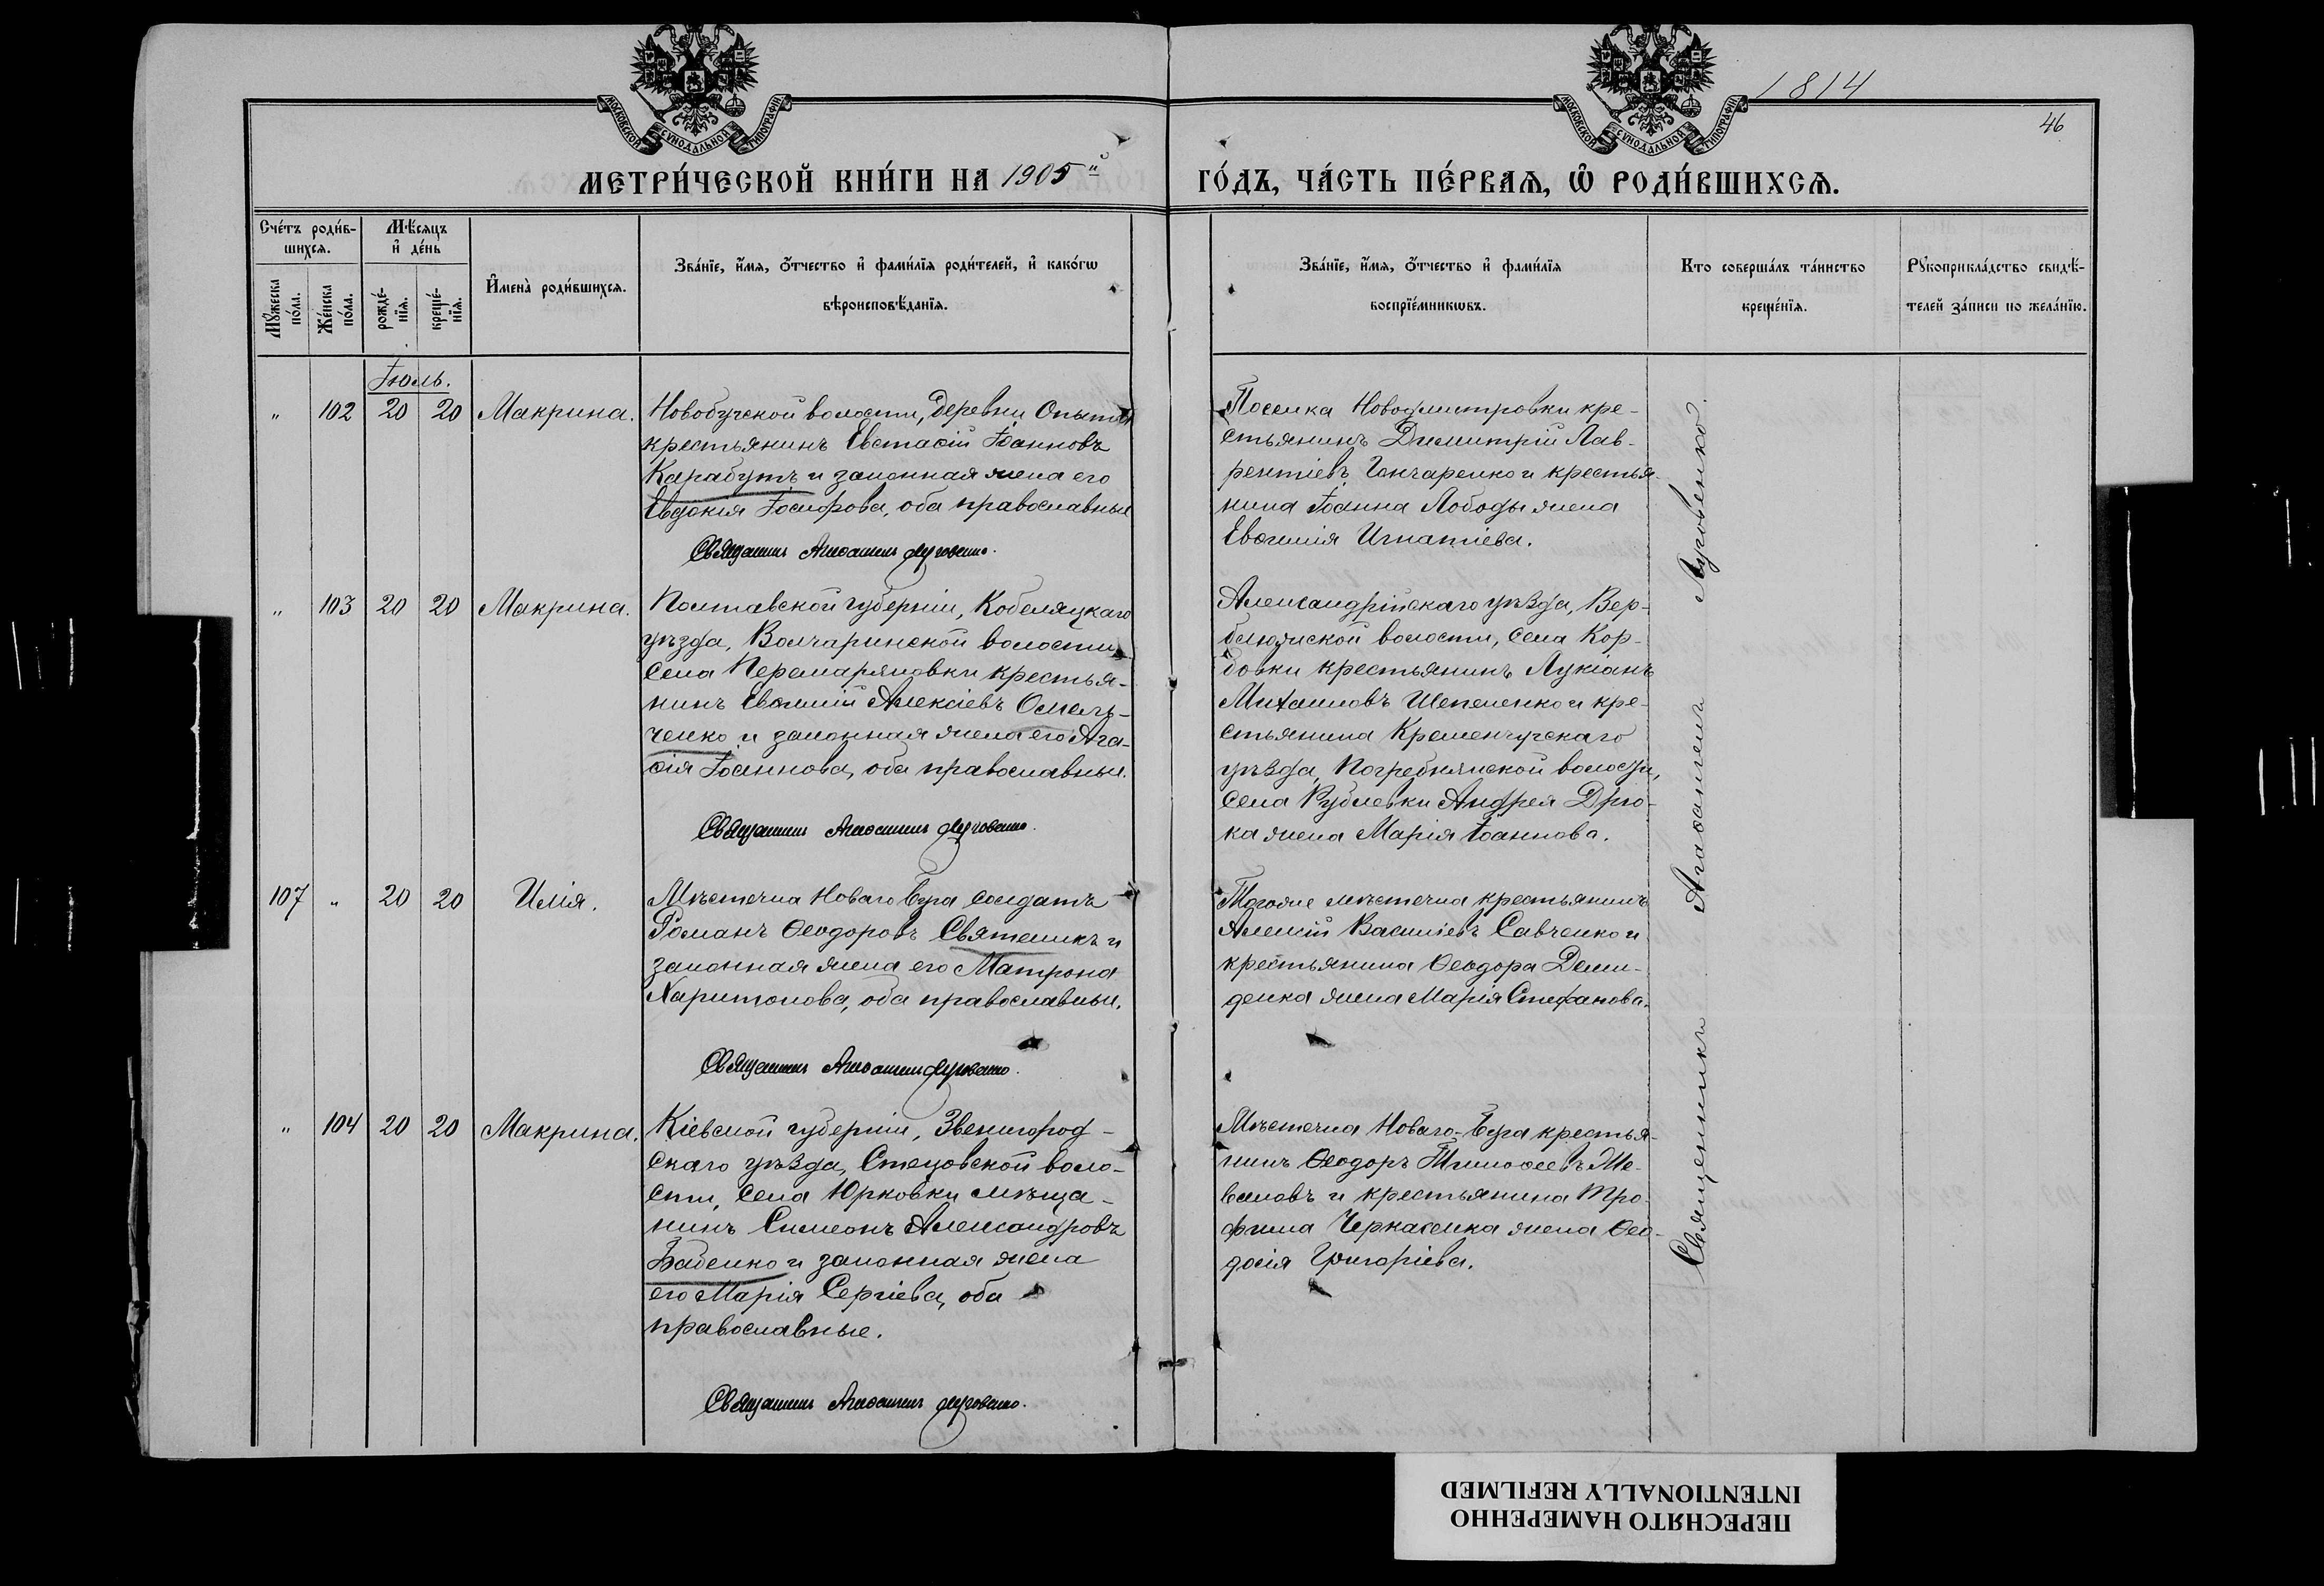 МОСКОВСКОЙ СѴНОДАЛЬНОЙ ТИПОГРАФІИ
МОСКОВСКОЙ СѴНОДАЛЬНОЙ ТИПОГРАФІИ
1814
46
МЕТРИ́ЧЕСКОЙ КНИ́ГИ НА 1905 й
ГО́ДЪ, ЧА́СТЬ ПЕ́РВАѦ, Ѡ҆ РОДИ́ВШИХСѦ.
Сче́тъ роди́в-
шихсѧ.
Мꙋ́жеска по́ла.
Же́нска по́ла.
Мѣ́сяцъ
и҆ де́нь
рожде́-
нїѧ.
креще́-
нїѧ.
И҆мена̀ роди́вшихсѧ.
Зва́нїе, и҆́мѧ, ѻ҆́тчество и҆ фами́лїѧ роди́телей, и҆ како́гѡ
вѣроисповѣ́данїѧ.
Зва́нїе, и҆́мѧ, ѻ҆́тчество и҆ фами́лїѧ
воспрїе́мникѡвъ.
Кто соверша́лъ та́инство
креще́нїѧ.
Рꙋкоприкла́дство свидѣ́-
телей за́писи по жела́нїю.
Іюль.
" 102 20 20 Макрина.
Новобугской волости, деревни Опытной
крестьянинъ Евстаѳій Іоанновъ
Карабутъ и законная жена его
Евдокія Іосифова, оба православные
Священникъ Агаѳангелъ Луговенко.
Поселка Новодмитровки кре-
стьянинъ Димитрій Лав-
рентіевъ Гончаренко и крестья-
нина Іоанна Лободы жена
Евѳимія Игнатіева.
" 103 20 20 Макрина.
Полтавской губерніи, Кобеляцкаго
уѣзда, Волчаринской волости,
села Перемаряновки крестья-
нинъ Евѳимій Алексіевъ Омель-
ченко и законная жена его Ага-
ѳія Іоаннова, оба православные.
Священникъ Агаѳангелъ Луговенко.
Александрійскаго уѣзда, Вер-
блюжской волости, села Кор-
бовки крестьянинъ Лукіанъ
Михаиловъ Шепеленко и кре-
стьянина Кременчугскаго
уѣзда, Погребнянской волости,
села Рублевки Андрея Дрю-
ка жена Марія Іоаннова.
107 " 20 20 Илія.
Мѣстечка Новаго Буга солдатъ
Романъ Ѳеодоровъ Святенкъ и
законная жена его Матрона
Харитонова, оба православные.
Священникъ Агаѳангелъ Луговенко.
Тогоже мѣстечка крестьянинъ
Алексій Василіевъ Савченко и
крестьянина Ѳеодора Деми-
денка жена Марія Стефанова.
" 104 20 20 Макрина.
Кіевской губерніи, Звенигород-
скаго уѣзда, Стецовской воло-
сти, села Юрковки мѣща-
нинъ Симеонъ Александровъ
Бабенко и законная жена
его Марія Сергіева, оба
православные.
Священникъ Агаѳангелъ Луговенко.
Мѣстечка Новаго-Буга крестья-
нинъ Ѳеодоръ Тимоѳеевъ Ше-
велювъ и крестьянина Тро-
фима Черкасенка жена Ѳео-
досія Григоріева.
Священникъ Агаѳангелъ Луговенко.
ПЕРЕСНЯТО НАМЕРЕННО
INTENTIONALLY REFILMED